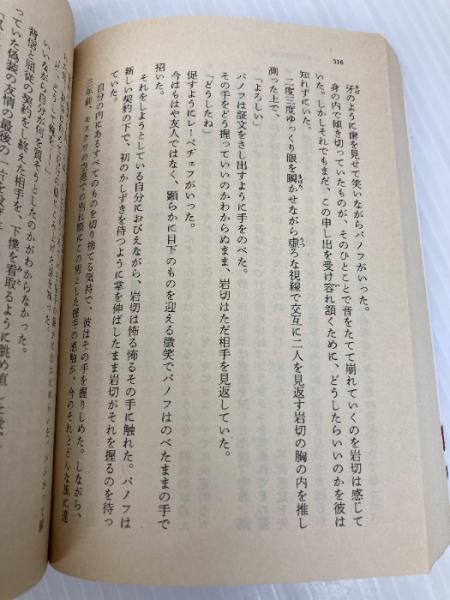 316
牙のように歯を見せて笑いながらパノフがいった。
身の内で傾き切っていたものが、そのひとことで音をたてて崩れていくのを岩切は感じて
いた。しかしそれでもまだ、この申し出を受け容れ頷くために、どうしたらいいのかを彼は
知れずにいた。
二度三度ゆっくり眼を瞬かせながら虚ろな視線で交互に二人を見返す岩切の胸の内を推し
測った上で、
「よろしい」
パノフは証文をさし出すように手をのべた。
その手をどう握っていいのかわからぬまま、岩切はただ相手を見返していた。
「どうしたね」
促すようにレーベチェフがいった。
今はもはや友人ではなく、顕らかに目下のものを迎える微笑でパノフはのべたままの手で
招いた。
それをしようとしている自分におびえながら、岩切は怖る怖るその手に触れた。パノフは
新しい契約の下で、初のかしずきを待つように掌を伸ばしたまま岩切がそれを握るのを待っ
ていた。
自分の内にあるすべてのものを切り捨てる気持で、彼はその手を握りしめた。しながら、
三年前、モスクワの空港での別れ際にこの男とした握手の感触が、今のそれとどんな風に違
いながら自分が何を質そうとしたのかがわからなかった。
背信と屈従の契約をし終えた相手を、下僕を看取るように眺め直し
っていた偽装の友情の最後の一片を